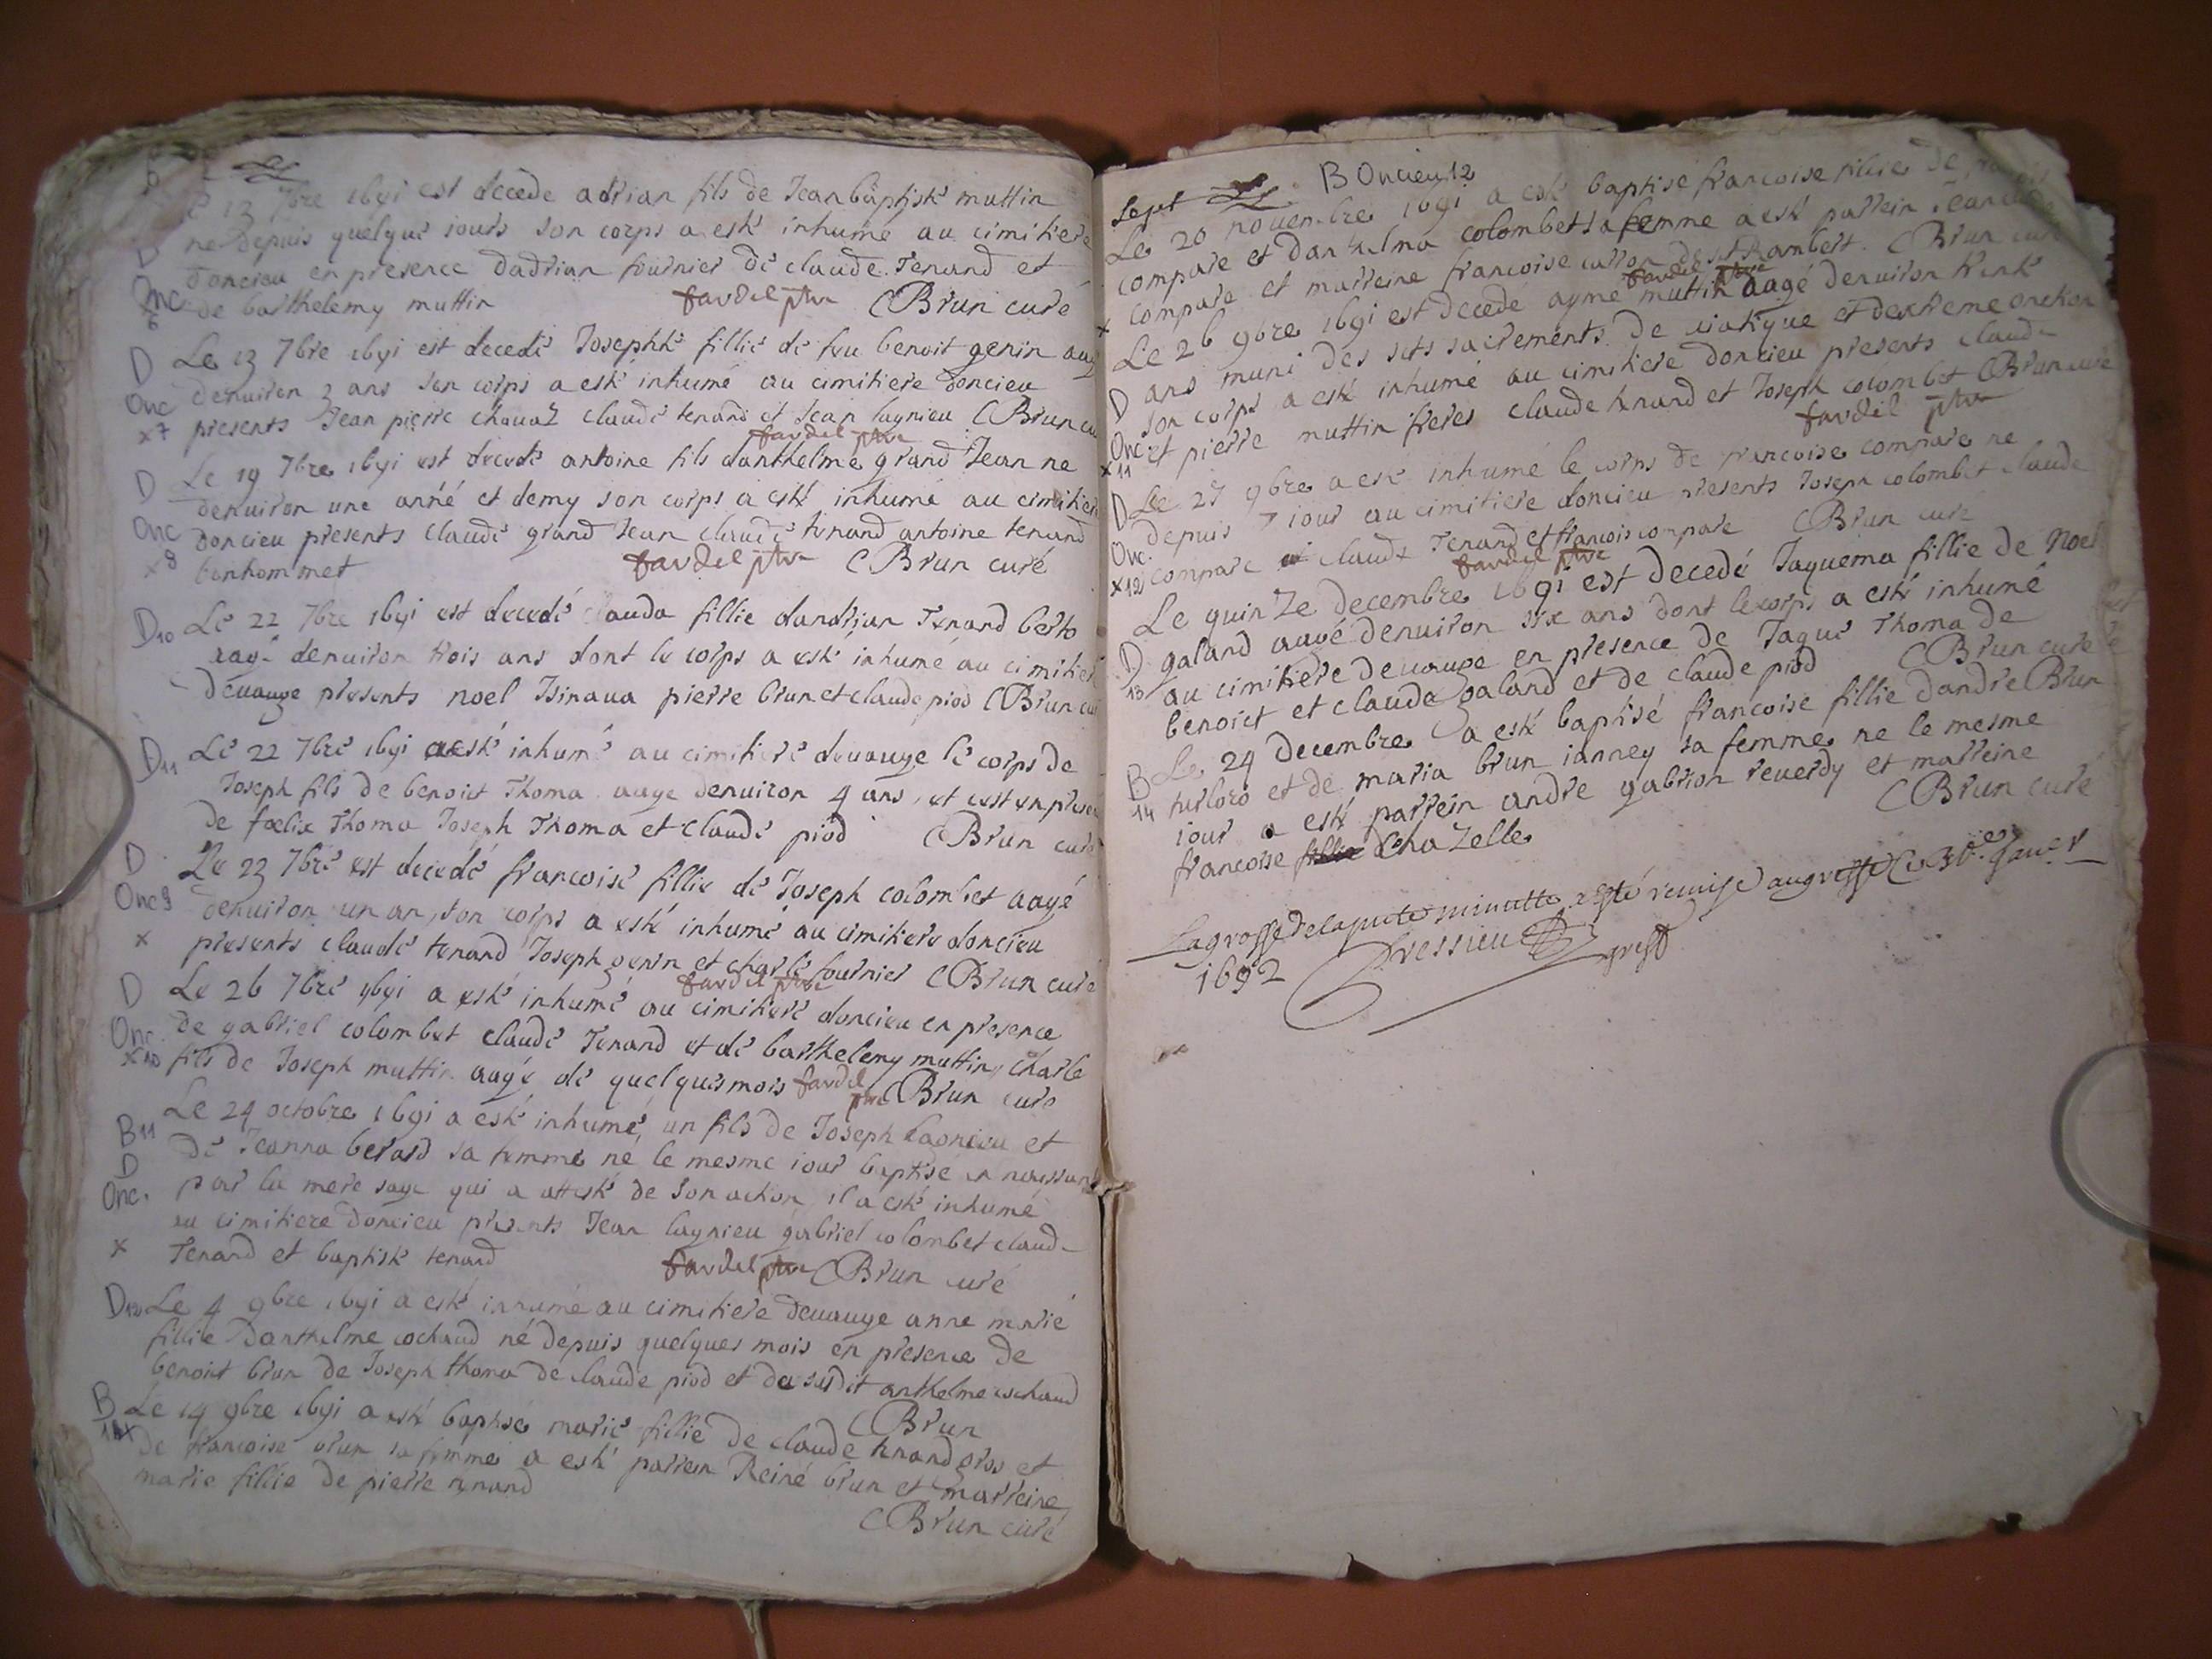 Le 13 7bre 1691 est decede adrian fils de Jean baptiste muttin
D né depuis quelque iours son corps a esté inhumé au cimitiere
Onc doncieu en presence dadrian fournier de claude Tenand et
6 de barthelemy muttin fardel ptre C Brun curé
D Le 13 7bre 1691 est decedé Josephte fillie de feu benoit genin aag
Onc denuiron 3 ans son corps a esté inhumé au cimitiere doncieu
x7 presents Jean pierre chauaz claude tenand et Jean lagnieu C Brun cu
fardel ptre
D Le 19 7bre 1691 est decedé antoine fils danthelme grand Jean ne
denuiron une année et demy son corps a esté inhumé au cimitiere
Onc doncieu presents claude grand Jean claude tenand antoine tenand
x8 bonhommet fardel ptre C Brun curé
D10 Le 22 7bre 1691 est decedé clauda fillie dandrian Tenand berto
aagé denuiron trois ans dont le corps a esté inhumé au cimitiere
deuauge presents noel Isinaua pierre brun et claude piod C Brun cu
D11 Le 22 7bre 1691 a esté inhumé au cimitiere deuauge le corps de
Joseph fils de benoict Thoma aage denuiron 4 ans, et cest en presen
de foelix Thoma Joseph Thoma et claude piod C Brun curé
D Le 23 7bre est decedé francoise fillie de Joseph colombet aagé
Onc9 denuiron un an, son corps a esté inhumé au cimitiere doncieu
x presents claude tenand Joseph genin et charle fournier C Brun curé
fardel ptre
D Le 26 7bre 1691 a esté inhumé au cimitiere doncieu en presence
Onc de gabriel colombet claude Tenand et de barthelemy muttin, charle
x10 fils de Joseph muttin aagé de quelques mois fardel ptre C Brun curé
Le 24 octobre 1691 a esté inhumé, un fils de Joseph lagnieu et
B11 de Jeanna berard sa femme né le mesme iour baptisé en naissant
D par la mere sage qui a attesté de son action, il a esté inhumé
Onc. au cimitiere doncieu presents Jean lagnieu gabriel colombet claude
x Tenand et baptiste tenand fardel ptre C Brun curé
D12 Le 4 9bre 1691 a esté inhumé au cimitiere deuauge anne marie
fillie danthelme cochaud né depuis quelques mois en presence de
benoit brun de Joseph thoma de claude piod et du susdit anthelme cochaud
C Brun
B Le 14 9bre 1691 a esté baptisé marie fillie de claude tenand gros et
de francoise brun sa femme a esté parrein Reiné brun et marreine
marie fillie de pierre tenand
C Brun curé
Sept B Oncieu 12
Le 20 nouembre 1691 a esté baptise francoise fillie de
compare et danthelma colombet sa femme a esté parrein Jean
compare et marreine francoise curron de st Rambert. C Brun curé
fardel ptre
x Le 26 9bre 1691 est decedé aymé muttin aagé denuiron trente
D ans muni des sts sacrements de uiatique et dextreme onction
son corps a esté inhumé au cimitiere doncieu presents claude
Onc et pierre muttin freres claude tenand et Joseph colombet C Brun curé
x11 fardel ptre
D Le 27 9bre a esté inhumé le corps de francoise compare ne
depuis 7 iour au cimitiere doncieu presents Joseph colombet claude
Onc. compare et claude Tenand et francois compare C Brun curé
x12 fardel ptre
Le quinze decembre 1691 est decedé Jaquema fillie de Noel
D galand aagé denuiron six ans dont le corps a esté inhumé
13 au cimitiere deuauge en presence de Jaque Thoma de
benoict et claude galand et de claude piod C Brun curé
B Le 24 decembre a esté baptisé francoise fillie dandre Brun
14 turloro et de maria brun ianney sa femme ne le mesme
iour a esté parrein andre gabrion reuerdy et marreine
francoise chazelle C Brun curé
La grosse de la pnte minutte a esté remise au greffe le 30e Januer
1692 Bressieu greff